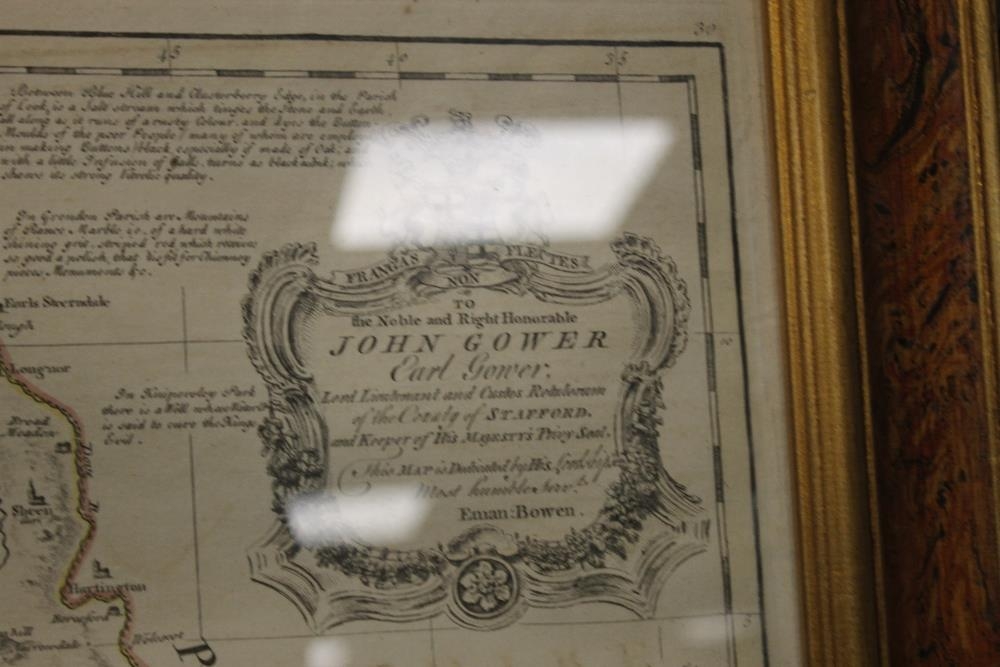 45 40 35 30
Between Blue Hill and Austerberry Edge, in the Parish
of Leek, is a Salt stream which tinges the Stone and Earth
all along as it runs of a rusty Colour, and dyes the Button
Moulds of the poor People (many of whom are
in making Buttons) black, especially if made of Oak;
with a little Infusion of Galls, turns as black as Ink;
shews its strong Vitriolic quality.
In Grendon Parish are Mountains
of Rance Marble, ie. of a hard white
shining grit, striped red which receives
so good a polish, that 'tis fit for Chimney
pieces Monuments &c.
FRANGAS
NON
FLECTES
TO
the Noble and Right Honorable
JOHN GOWER
Earl Gower,
Lord Lieutenant and Custos Rotulorum
of the County of STAFFORD,
and Keeper of His MAJESTY'S Privy Seal.
This MAP is Dedicated by His Lordship's
Most humble Servt.
Eman: Bowen.
Earls Sterndale
Longnor
In Kniperсley Park
there is a Well whose Water
is said to cure the Kings
Evil.
Broad
Meadow
Dove R.
Sheen
Hartington
Beresford
Wolscot
P
10
5